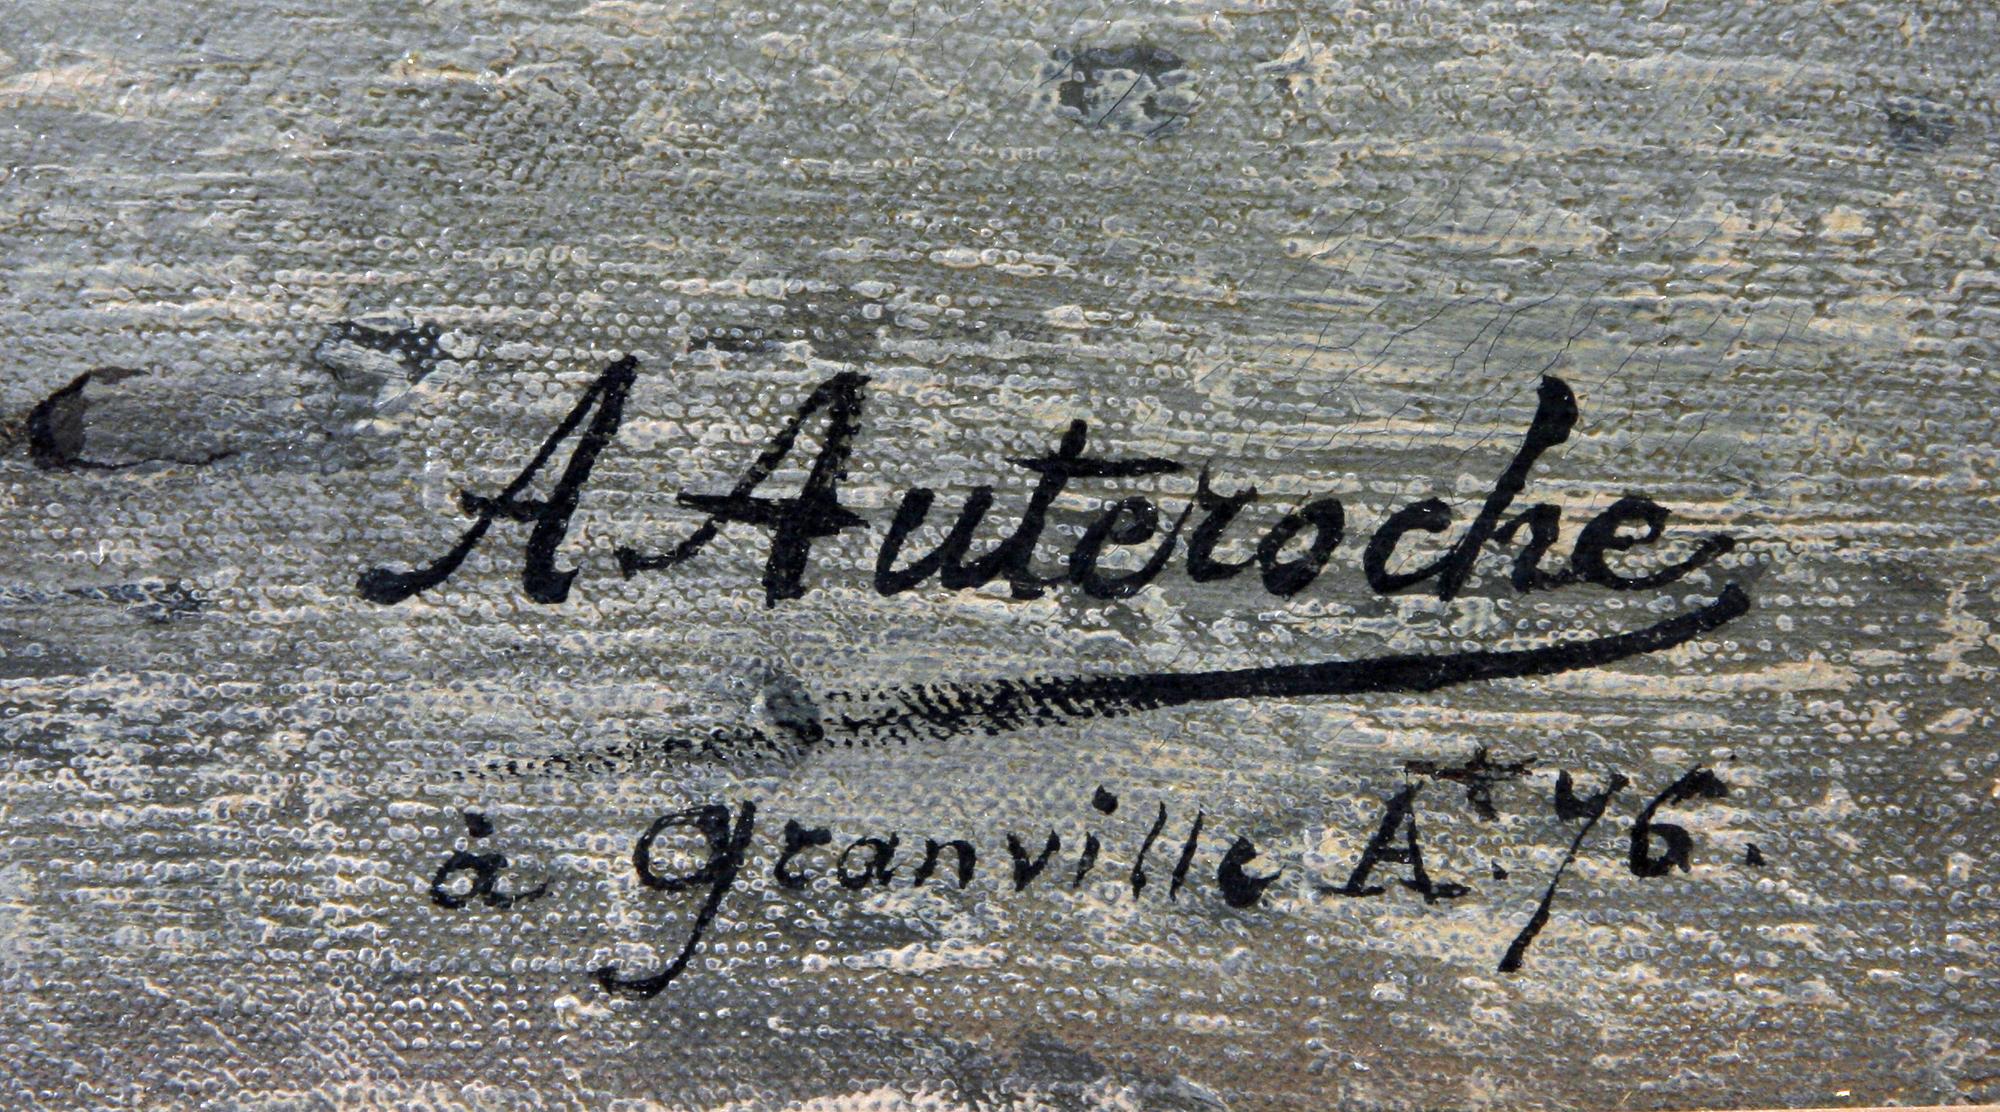 A Auteroche
à Granville At. 76.